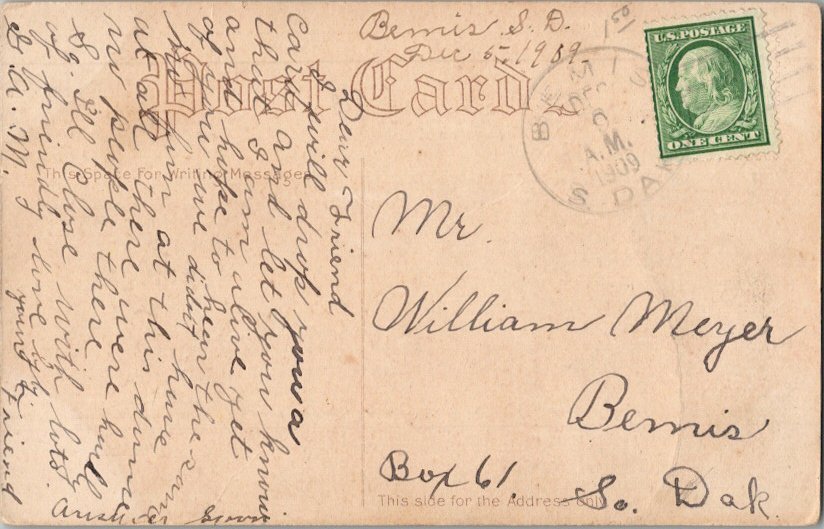 Bemis S. D.
Dec 5, 1909.
Post Card
BEMIS
DEC
6
A.M.
1909
S. DAK.
U.S. POSTAGE
ONE CENT
This Space For Writing Messages
Dear Friend
I will drop you a
card and let you know
that I am alive yet
and hope to hear the same
of you we didnt have
fun at this dance
at all there were hardly
no people there
So I'll Close with lots
of friendly love by
your Friend
G. A. M.
Answer Soon
Mr.
William Meyer
Bemis
Box 61,
So. Dak.
This side for the Address only